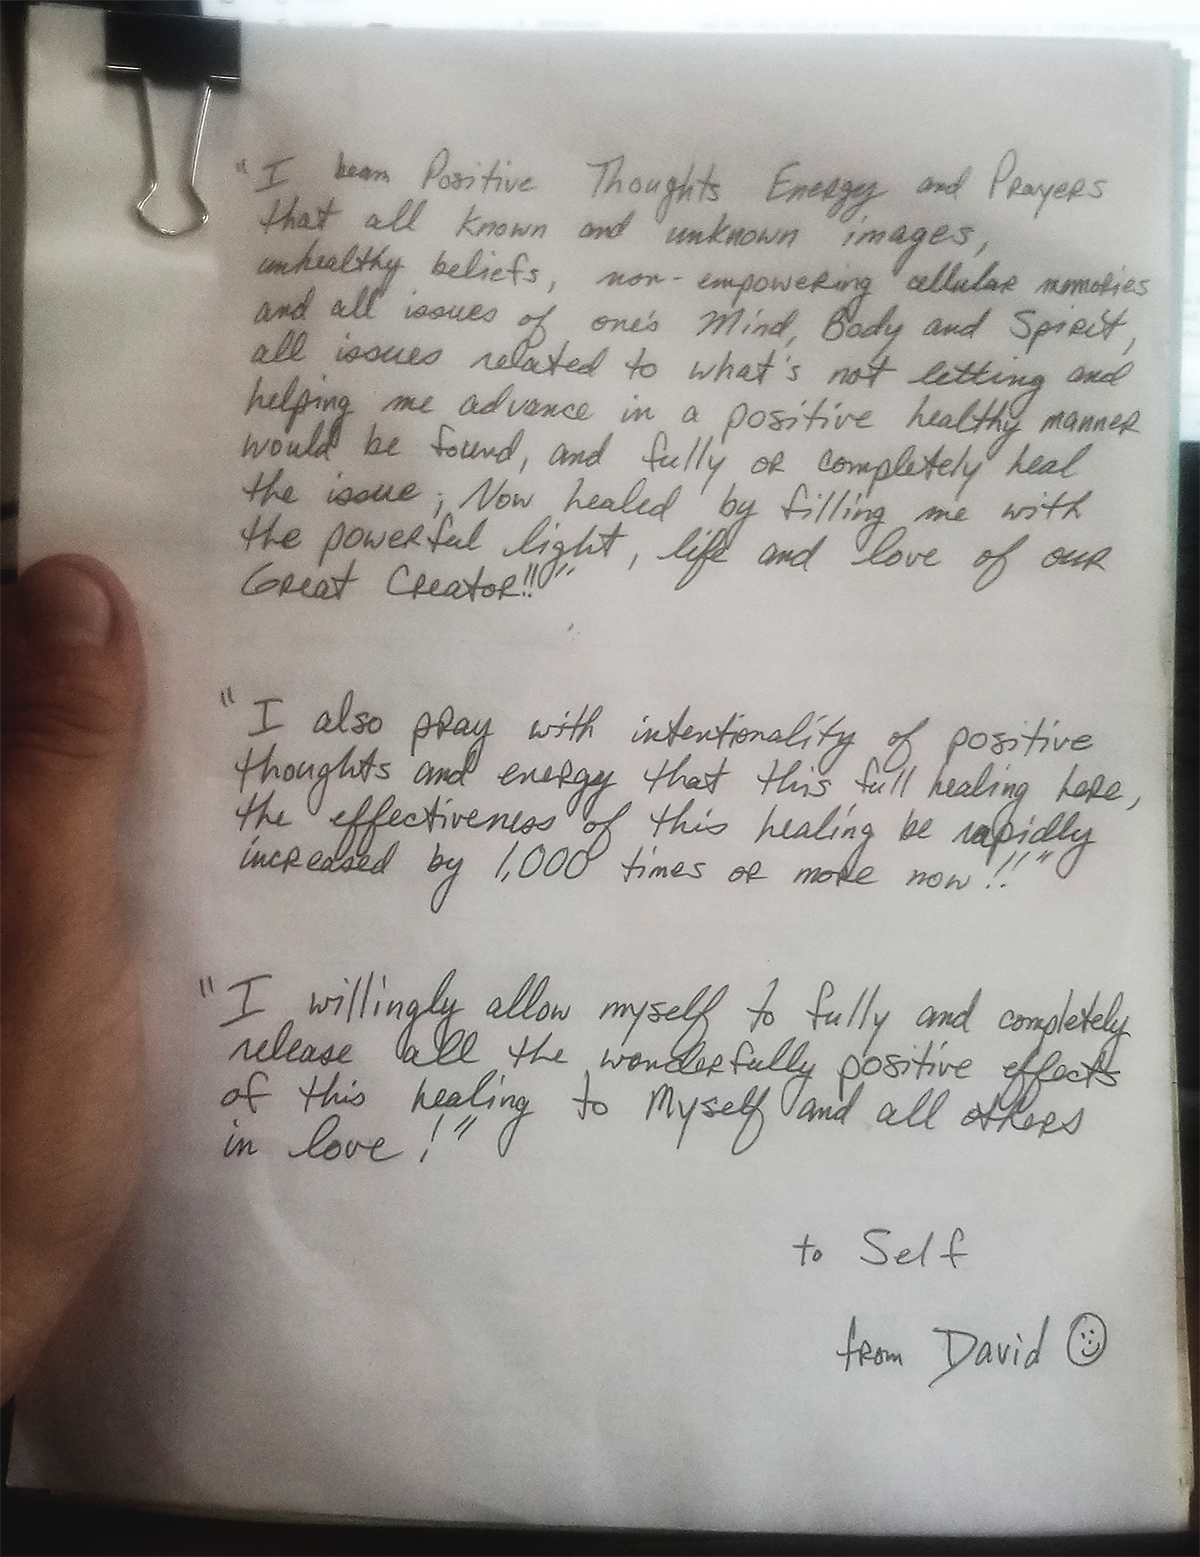 "I beam Positive Thoughts Energy and Prayers
that all known and unknown images,
unhealthy beliefs, non-empowering cellular memories
and all issues of one's Mind, Body and Spirit,
all issues related to what's not letting and
helping me advance in a positive healthy manner
would be found, and fully or completely heal
the issue; Now healed by filling me with
the powerful light, life and love of our
Great Creator!!"
"I also pray with intentionality of positive
thoughts and energy that this full healing here,
the effectiveness of this healing be rapidly
increased by 1,000 times or more now!!"
"I willingly allow myself to fully and completely
release all the wonderfully positive effects
of this healing to Myself and all others
in love!"
to Self
from David ☺